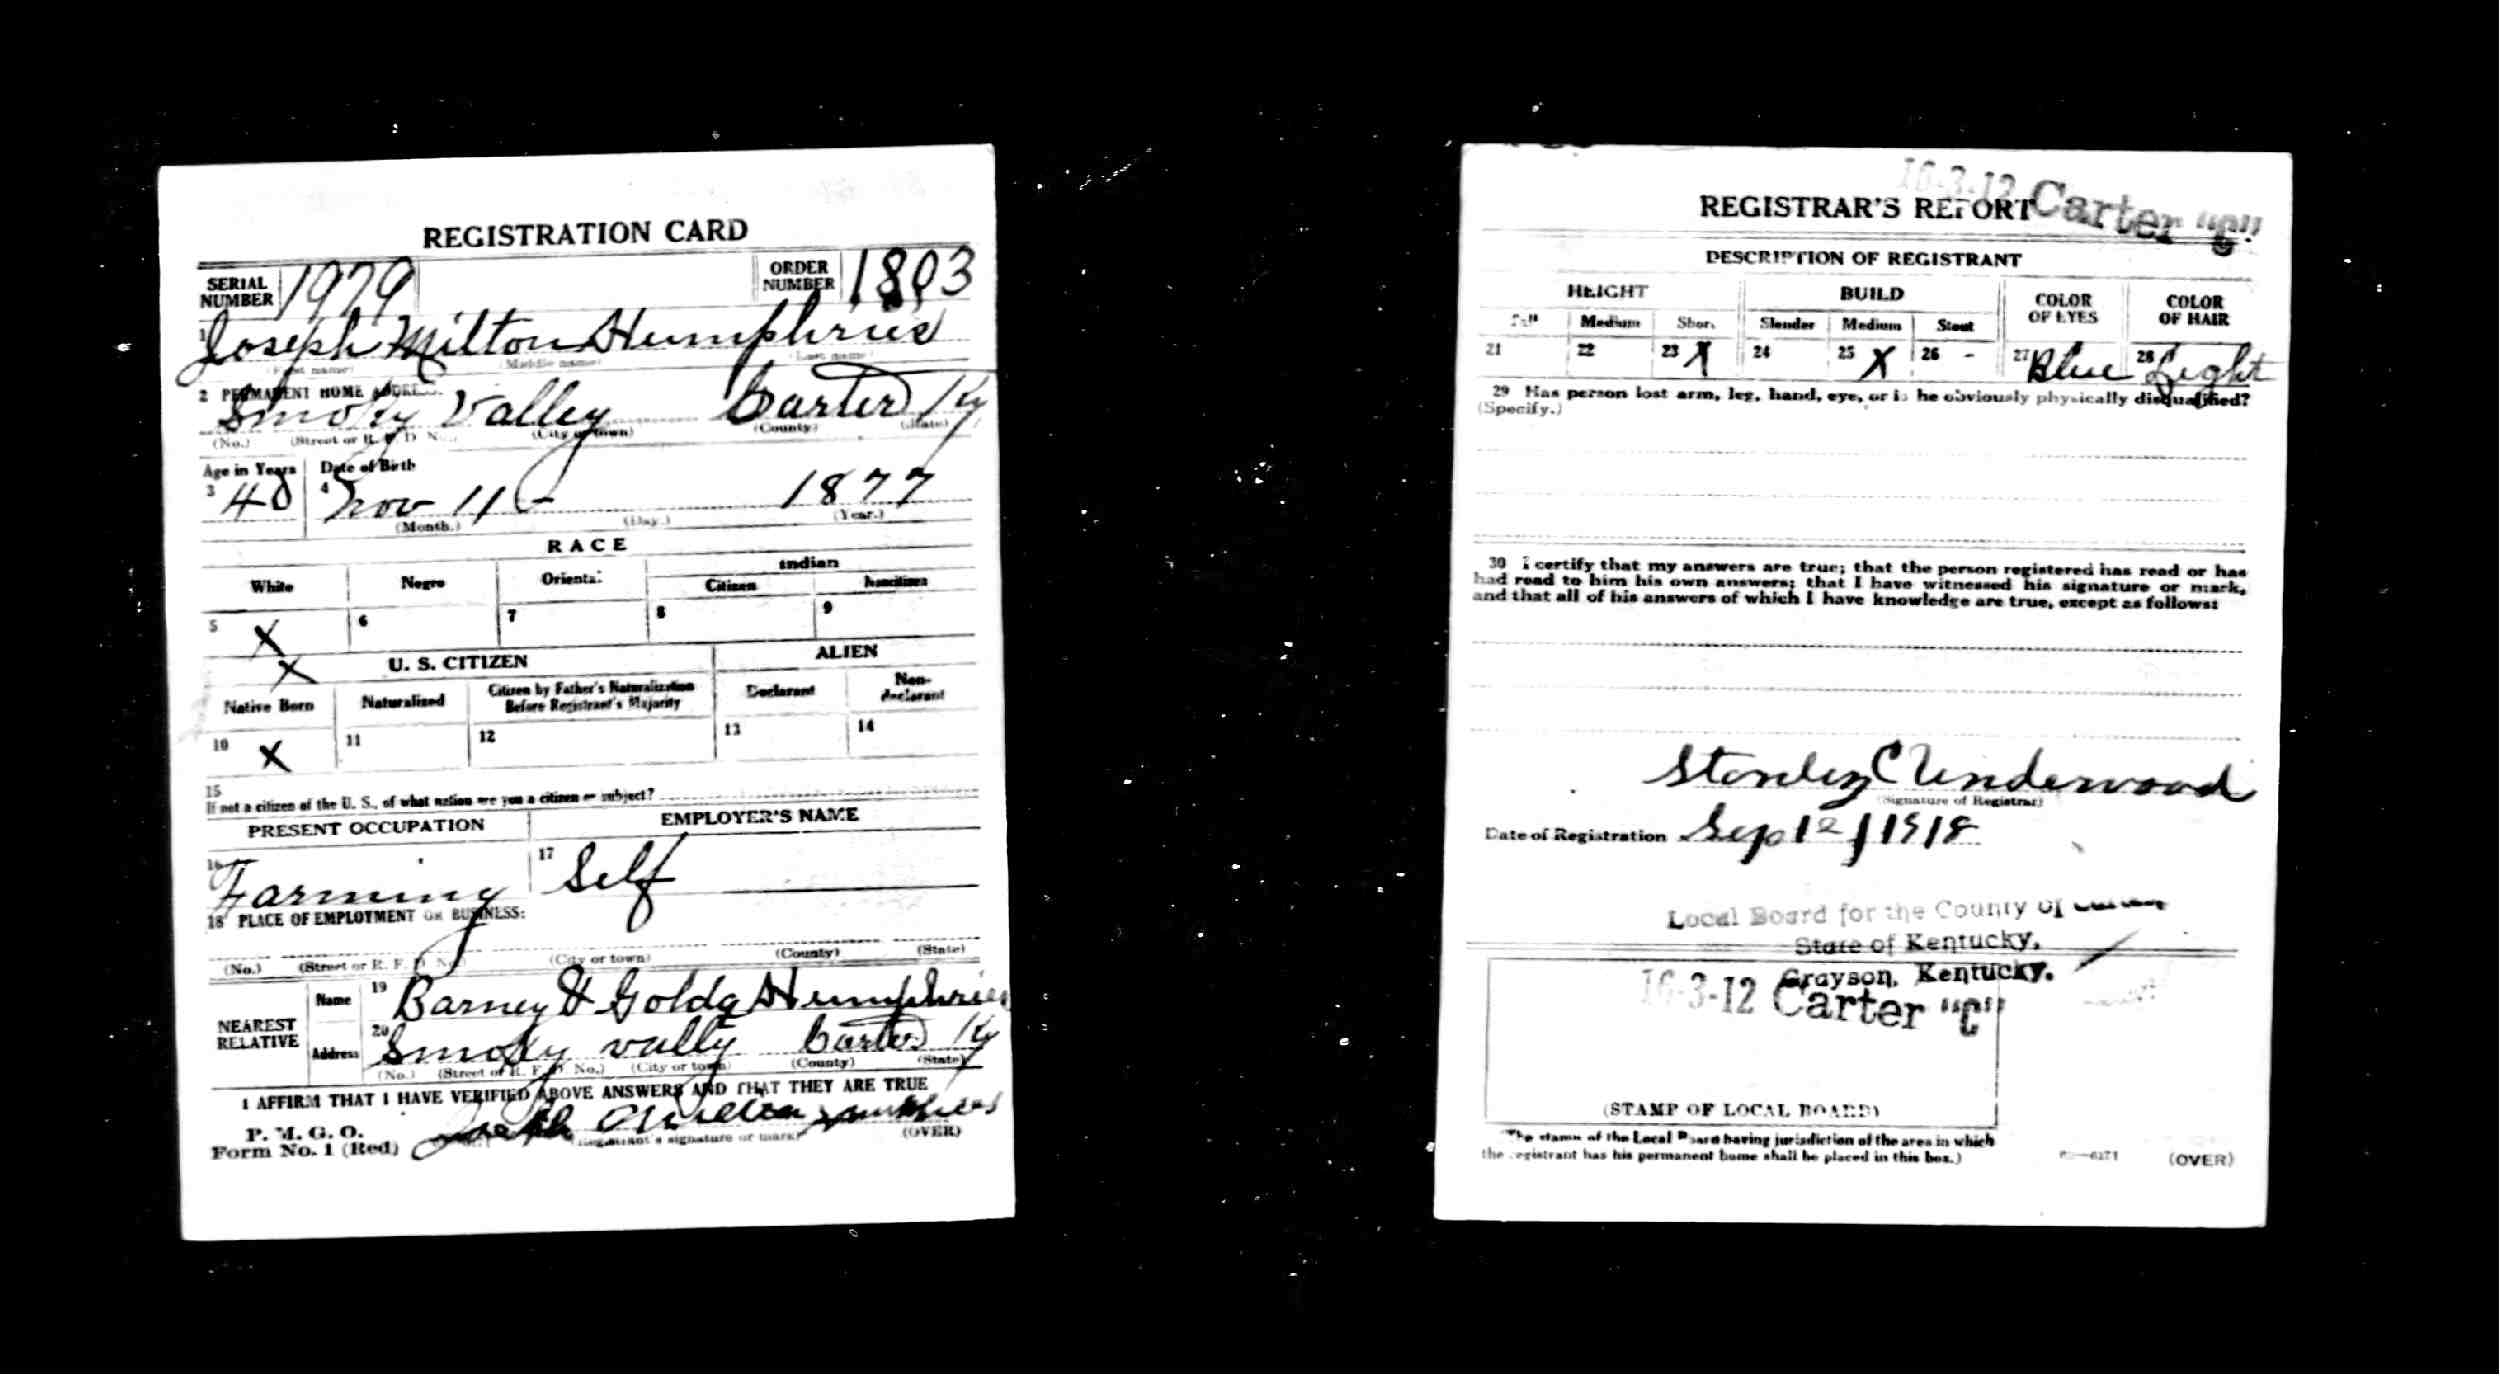 REGISTRATION CARD
SERIAL NUMBER 1979 ORDER NUMBER 1803
1 Joseph Milton Humphries
(First name) (Middle name) (Last name)
2 PERMANENT HOME ADDRESS:
Smoky Valley Carter Ky
(No.) (Street or R. F. D. No.) (City or town) (County) (State)
Age in Years Date of Birth
3 40 4 Nov 11 - 1877
(Month.) (Day.) (Year.)
RACE
White Negro Oriental Indian
Citizen Noncitizen
5 X 6 7 8 9
X U. S. CITIZEN ALIEN
Native Born Naturalized Citizen by Father's Naturalization Before Registrant's Majority Declarant Non-declarant
10 X 11 12 13 14
15
If not a citizen of the U. S., of what nation are you a citizen or subject?
PRESENT OCCUPATION EMPLOYER'S NAME
16 Farming 17 Self
18 PLACE OF EMPLOYMENT OR BUSINESS:
(No.) (Street or R. F. D. No.) (City or town) (County) (State)
NEAREST RELATIVE Name 19 Barney & Goldy Humphries
Address 20 Smoky vally Carter Ky
(No.) (Street or R. F. D. No.) (City or town) (County) (State)
I AFFIRM THAT I HAVE VERIFIED ABOVE ANSWERS AND THAT THEY ARE TRUE
P. M. G. O.
Form No. 1 (Red) Joseph Milton Humphries
(Registrant's signature or mark) (OVER)
16-3-12 Carter "C"
REGISTRAR'S REPORT
DESCRIPTION OF REGISTRANT
HEIGHT BUILD COLOR OF EYES COLOR OF HAIR
Tall Medium Short Slender Medium Stout
21 22 23 X 24 25 X 26 - 27 Blue 28 Light
29 Has person lost arm, leg, hand, eye, or is he obviously physically disqualified?
(Specify.)
30 I certify that my answers are true; that the person registered has read or has
had read to him his own answers; that I have witnessed his signature or mark,
and that all of his answers of which I have knowledge are true, except as follows:
Stanley C Underwood
(Signature of Registrar)
Date of Registration Sep 12 / 1918
Local Board for the County of Carter
State of Kentucky,
Grayson, Kentucky.
16-3-12 Carter "C"
(STAMP OF LOCAL BOARD)
(The stamp of the Local Board having jurisdiction of the area in which
the registrant has his permanent home shall be placed in this box.)
(OVER)